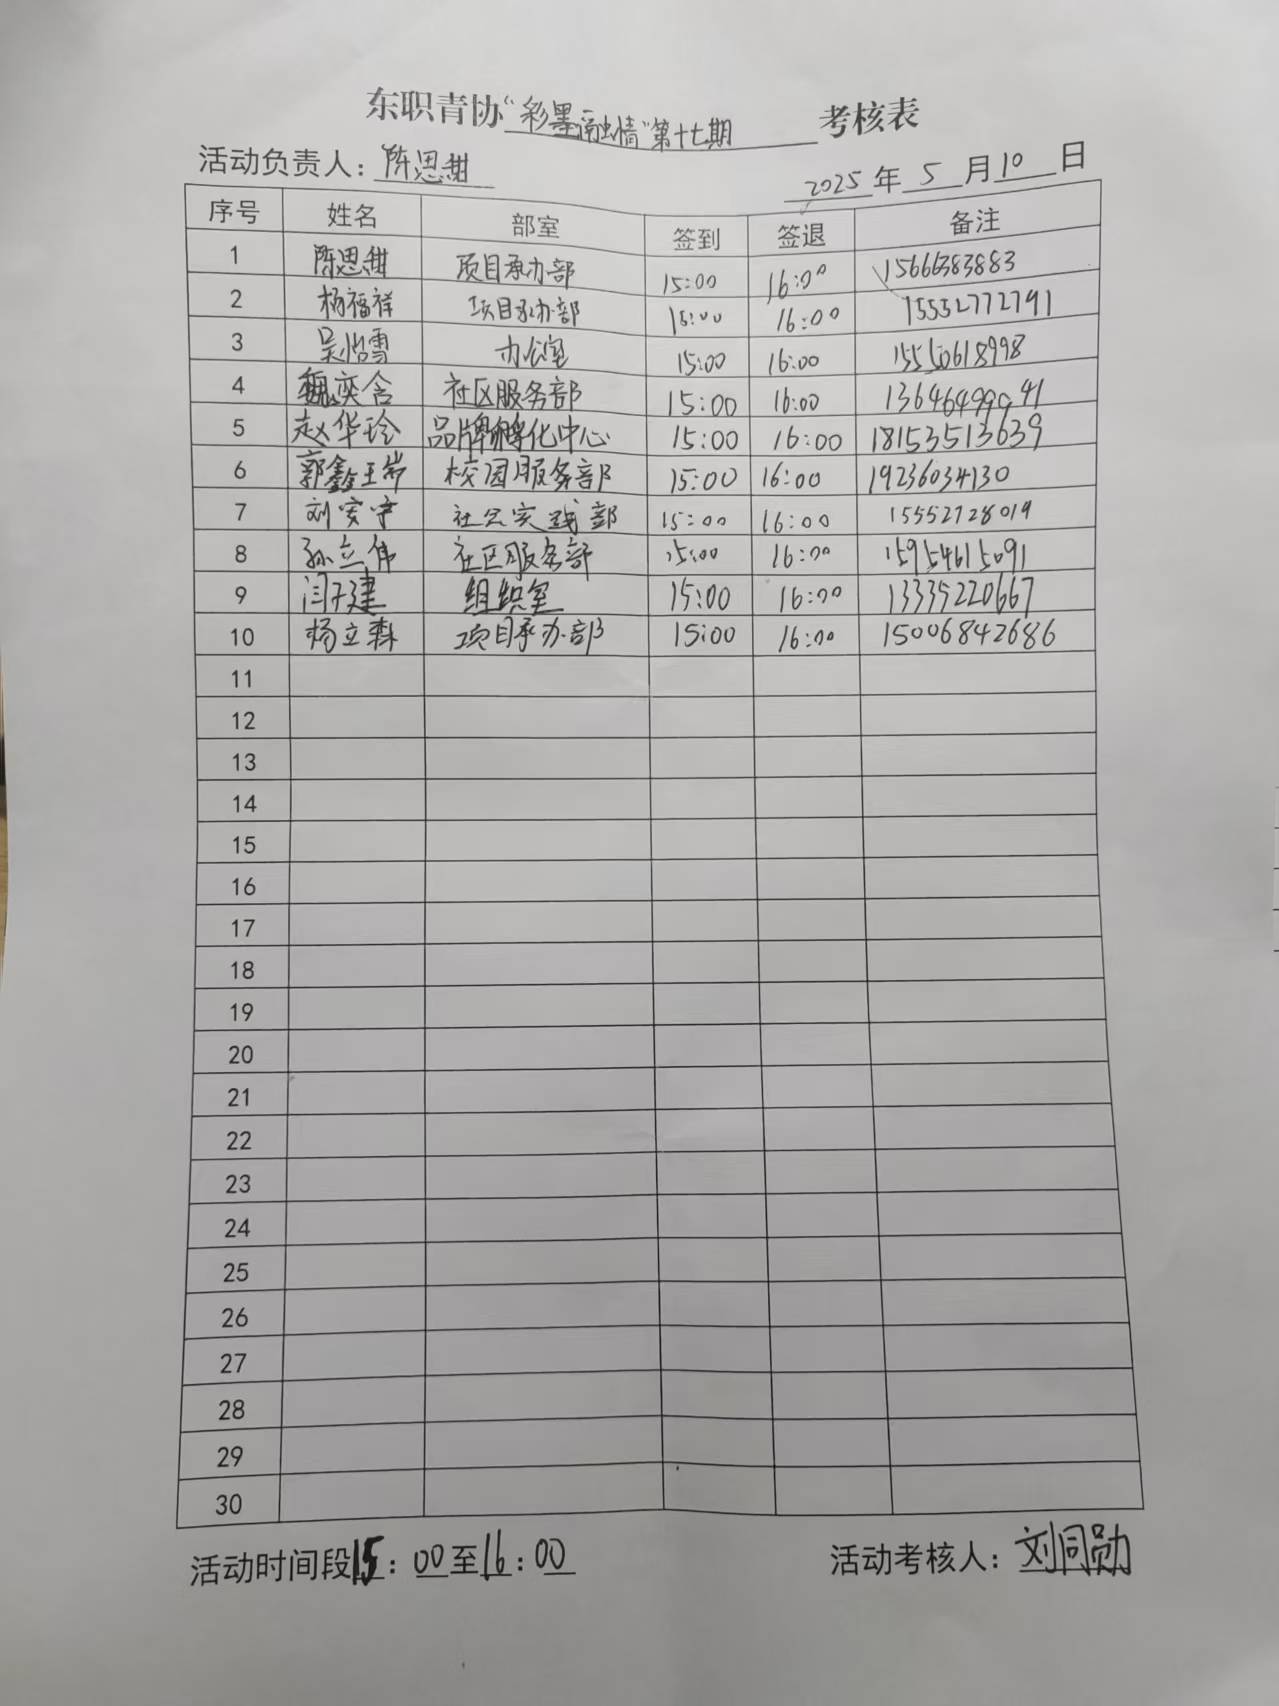 东职青协“彩墨融情”第十七期 考核表
活动负责人：陈思甜 2025年5月10日
序号 姓名 部室 签到 签退 备注
1 陈思甜 项目承办部 15:00 16:00 15666383883
2 杨福祥 项目承办部 15:00 16:00 15552772791
3 吴怡雪 办公室 15:00 16:00 15550618998
4 魏奕含 社区服务部 15:00 16:00 13646499941
5 赵华玲 品牌孵化中心 15:00 16:00 18153513639
6 郭鑫玉岩 校园服务部 15:00 16:00 19236034130
7 刘安宁 社会实践部 15:00 16:00 15552728019
8 孙立伟 社区服务部 15:00 16:00 15954615091
9 闫子建 组织室 15:00 16:00 13335220667
10 杨立森 项目承办部 15:00 16:00 15006842686
11
12
13
14
15
16
17
18
19
20
21
22
23
24
25
26
27
28
29
30
活动时间段15：00至16：00 活动考核人：刘同勋